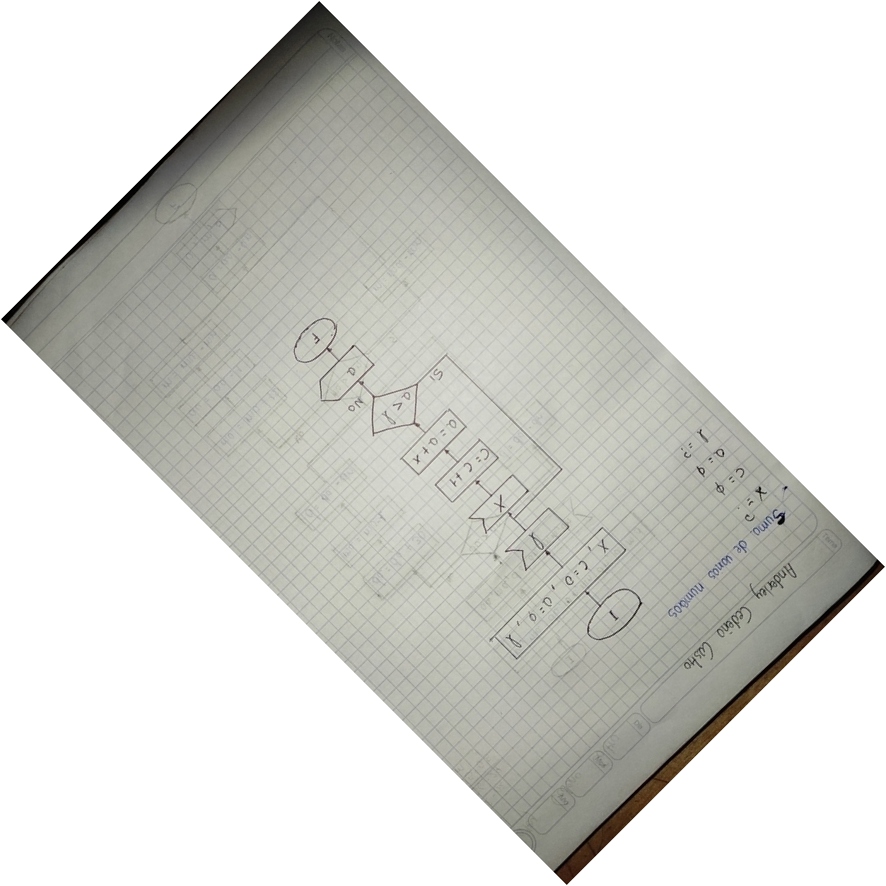 Anderley Cedeño Castro
Suma de varios numeros
X = ?
C = ϕ
a = ϕ
l = ?
I
X, C=0, a=0, l
l
X
C=C+1
a=a+x
a<l
Si
No
a
F